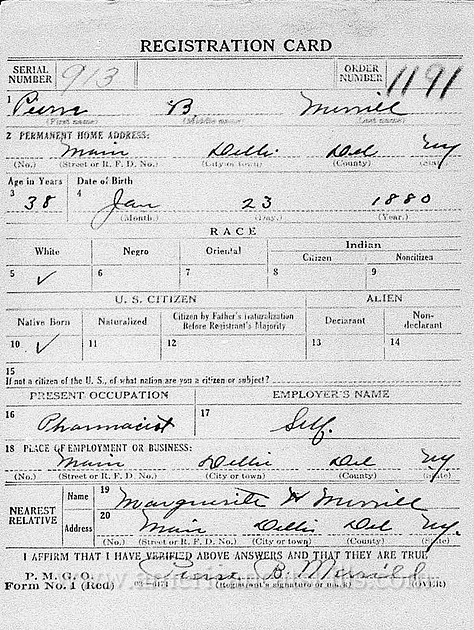 REGISTRATION CARD
SERIAL NUMBER 913 ORDER NUMBER 1191
1 Pierre B Merrill
(First name) (Middle name) (Last name)
2 PERMANENT HOME ADDRESS:
Main Delhi Del NY
(No.) (Street or R. F. D. No.) (City or town) (County) (State)
Age in Years Date of Birth
3 38 4 Jan 23 1880
(Month.) (Day.) (Year.)
RACE
White Negro Oriental Indian
Citizen Noncitizen
5 ✓ 6 7 8 9
U. S. CITIZEN ALIEN
Native Born Naturalized Citizen by Father's Naturalization Before Registrant's Majority Declarant Non-declarant
10 ✓ 11 12 13 14
15
If not a citizen of the U. S., of what nation are you a citizen or subject?
PRESENT OCCUPATION EMPLOYER'S NAME
16 Pharmacist 17 Self.
18 PLACE OF EMPLOYMENT OR BUSINESS:
Main Delhi Del NY
(No.) (Street or R. F. D. No.) (City or town) (County) (State)
NEAREST RELATIVE Name 19 Marguerite H Merrill
Address 20 Main Delhi Del NY.
(No.) (Street or R. F. D. No.) (City or town) (County) (State)
I AFFIRM THAT I HAVE VERIFIED ABOVE ANSWERS AND THAT THEY ARE TRUE
P. M. G. O. Pierre B. Merrill
Form No. 1 (Red) (Registrant's signature or mark) (OVER)